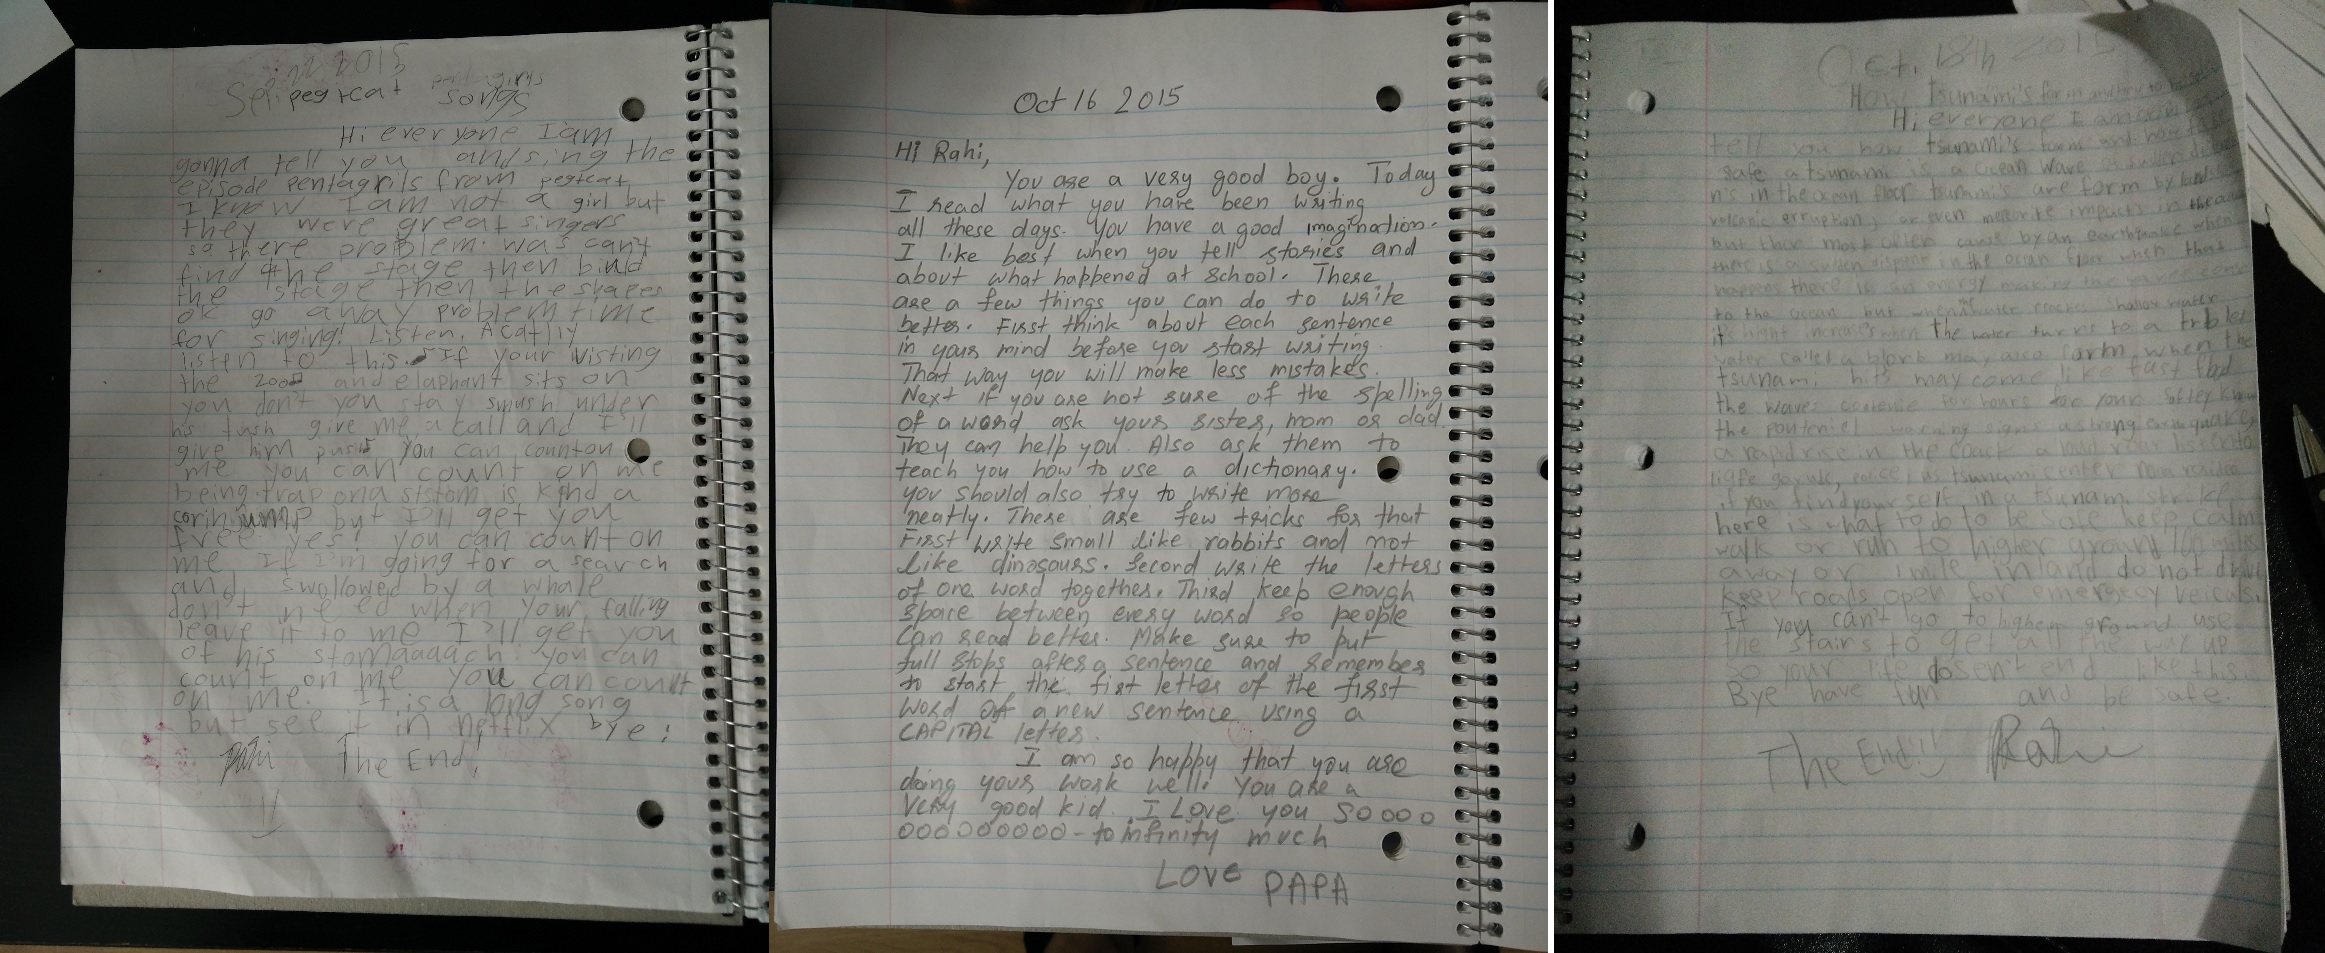 2015
pentagirls
pegtcat songs
Hi everyone I am
gonna tell you and sing the
episode pentagrils from pegtcat
I know I am not a girl but
they were great singers
so there problem was can't
find the stage then biuld
the stage then the shapes
ok go away problem time
for singing! Listen. Acatliy
listen to this. If your visting
the zoo and elaphant sits on
you don't you stay smush under
his tush give me a call and I'll
give him push You can count on
me you can count on me
being trap on a is kind a
jump but I'll get you
free yes! you can count on
me, If I'm going for a search
and swollowed by a whale
don't need when your falling
leave it to me I'll get you
of his stomaaaach you can
count on me you can count
on me. It is a long song
but see it in netflix bye!
Rahi The End!
Oct 16 2015
Hi Rahi,
You are a very good boy. Today
I read what you have been writing
all these days. You have a good imagination.
I like best when you tell stories and
about what happened at school. These
are a few things you can do to write
better. First think about each sentence
in your mind before you start writing.
That way you will make less mistakes.
Next if you are not sure of the spelling
of a word ask your sister, mom or dad.
They can help you. Also ask them to
teach you how to use a dictionary.
you should also try to write more
neatly. There are few tricks for that
First write small like rabbits and not
like dinosours. Second write the letters
of one word together. Third keep enough
space between every word so people
can read better. Make sure to put
full stops after a sentence and remember
to start the first letter of the first
word of a new sentence using a
CAPITAL letter.
I am so happy that you are
doing your work well. You are a
very good kid. I Love you soooo
ooooooooo-to infinity much
LOVE PAPA
Oct. 18th 2015
How tsunami's form and how to
Hi everyone I am
tell you how tsunami's form and how
safe a tsunami is a ocean wave a sudden
n's in the ocean floor tsunami's are form by
volcanic erruption, or even meteorite impacts in the
but most often by an earthquake when
there is a sudden in the ocean floor when this
happens there is an energy making the
to the ocean but when water reaches shallow water
it's hight increases when the water turns to a
water called a may also form when the
tsunami hits may come like fast
the waves for hours for your
the warning signs a strong earthquake,
a rapid rise in the
tsunami center
if you find your self in a tsunami strike
here is what to do to be safe keep calm
walk or run to higher ground 100
away or 1 mile inland do not drive
keep roads open for emergecy
If you can't go to higher ground use
the stairs to get all the way up
so your life dosen't end like this.
Bye have fun and be safe.
The End!! Rahi